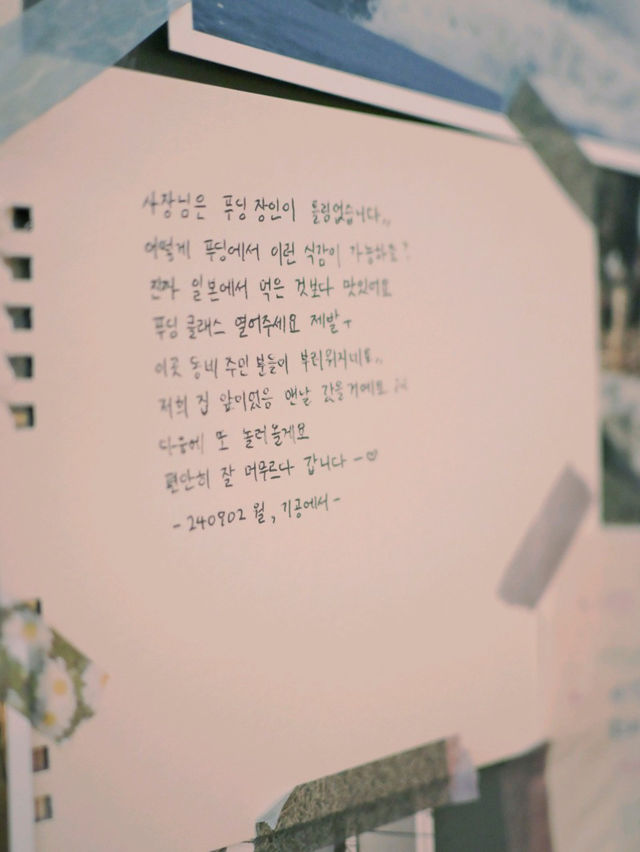 사장님은 푸딩 장인이 틀림없습니다,,
어떻게 푸딩에서 이런 식감이 가능하죠?
진짜 일본에서 먹은 것보다 맛있어요
푸딩 클래스 열어주세요 제발ㅜ
이곳 동네 주민 분들이 부러워지네요,,
저희 집 앞이었음 맨날 갔을거예요
다음에 또 놀러올게요
편안히 잘 머무르다 갑니다 -♡
- 240902 월, 기공에서 -